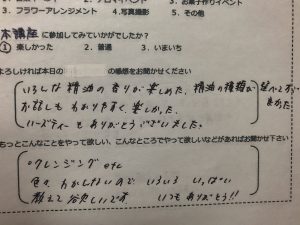 3. フラワーアレンジメント 4. 写真撮影 5. その他
本講座に参加してみていかがでしたか？
① 楽しかった 2. 普通 3. いまいち
よろしければ本日の の感想をお聞かせください
いろんな精油の香りが楽しめた。精油の種類が
お話しもわかりやすく楽しかった。
ハーブティーもありがとうございました。
もっとこんなことをやって欲しい、こんなところでやって欲しいなどがあればお聞かせ下さい
○クレンジング etc
色々わからないので いろいろ いっぱい
教えて欲しいです いつもありがとう!!